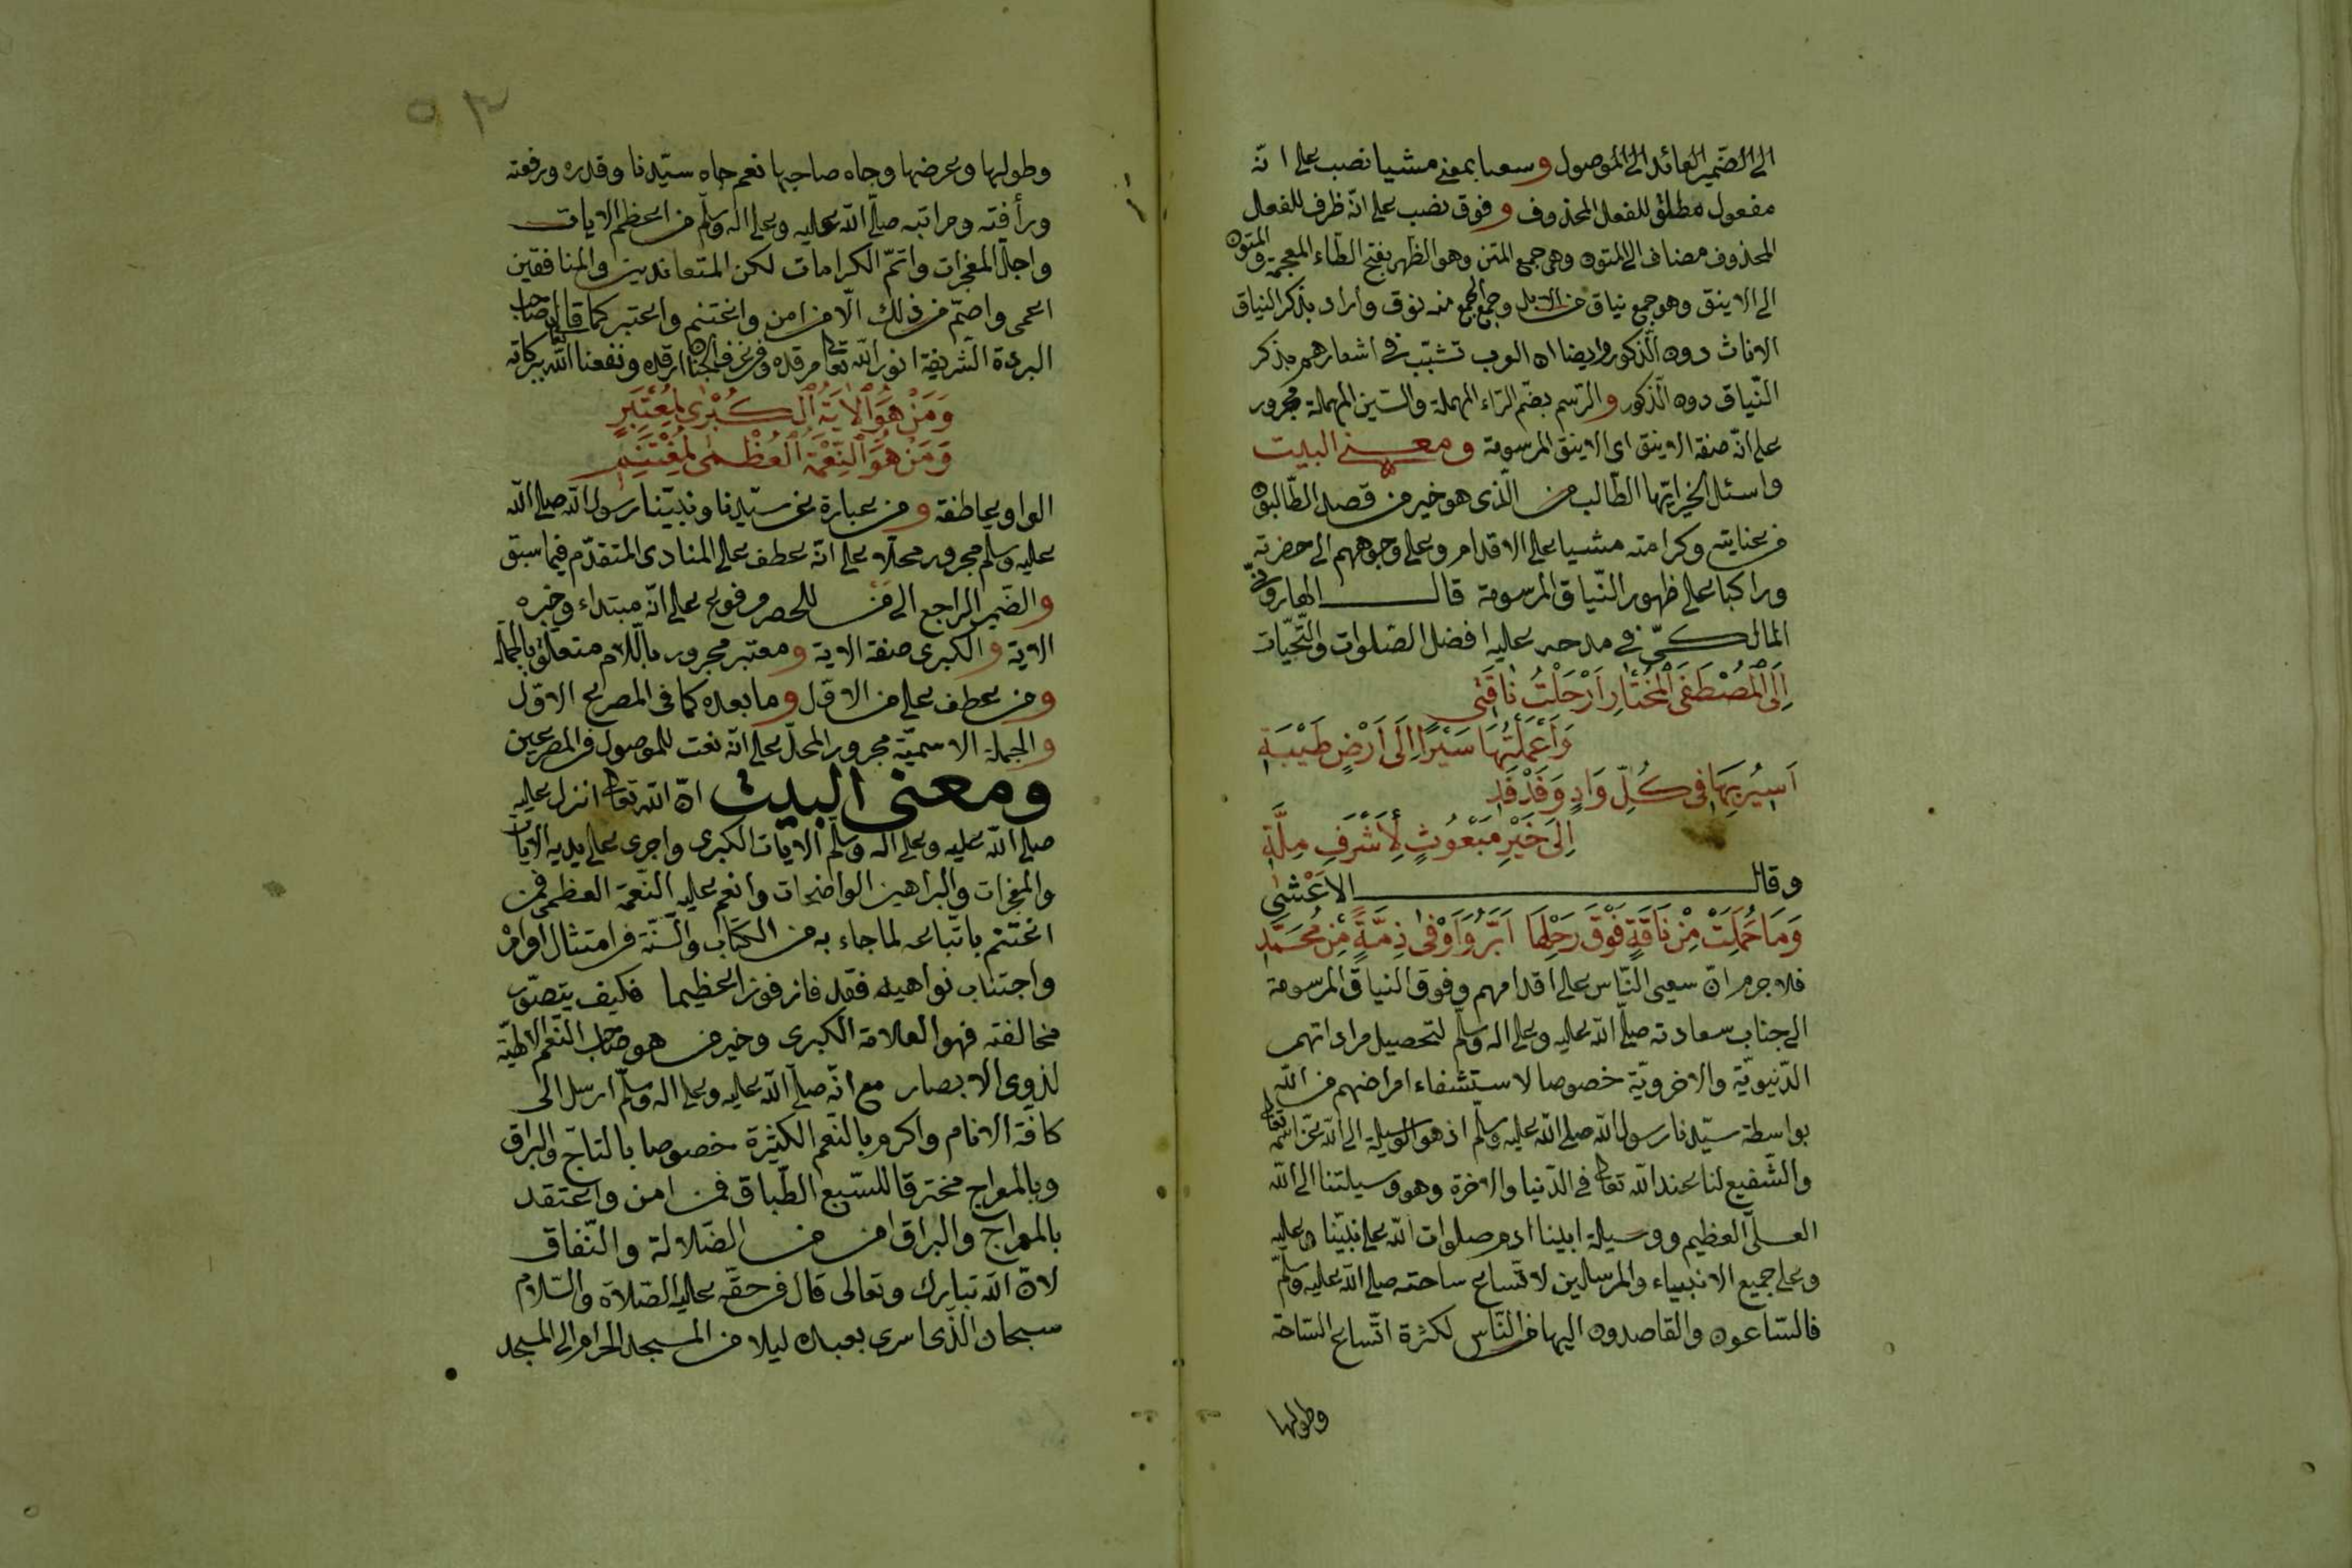 الى الضمير العائد الى الموصول وسعيا بمعنى مشيا نصب على انّه
مفعول مطلق للفعل المحذوف وفوق نصب على انّه ظرف للفعل
المحذوف مضاف الى المتون وهى جمع المتن وهو الظهر بفتح الظاء المعجمة والمتون
الى الاينق وهو جمع نياق من الابل وجمع الجمع منه نوق واراد بذكر النياق
الاناث دون الذكور وايضا ان العرب تشبّب فى اشعارهم بذكر
النّياق دون الذكور والرّسم بضم الرّاء المهملة والسّين المهملة مجرور
على انّه صفة الاينق اى الاينق المرسومة ومعنى البيت
واسئل الخير ايّها الطّالب من الّذى هو خير من قصد الطّالبون
من عنايته وكرامته مشيا على الاقدام وعلى وجوههم الى حضرته
وراكبا على ظهور النّياق المرسومة قال الهارونىّ
المالكىّ فى مدحه عليه افضل الصّلوات والتّحيّات
اِلَى الْمُصْطَفَى الْمُخْتَارِ اَرْحَلْتُ نَاقَتِى
وَاَعْمَلْتُهَا سَيْرًا اِلَى اَرْضِ طَيْبَةِ
اَسِيرُ بِهَا فِى كُلِّ وَادٍ وَفَدْفَدِ
اِلَى خَيْرِ مَبْعُوثٍ لِأَشْرَفِ مِلَّةِ
وقال الاَعْشٰى
وَمَا حَمَلَتْ مِنْ نَاقَةٍ فَوْقَ رَحْلِهَا اَبَرُّ وَاَوْفَى ذِمَّةً مِنْ مُحَمَّدِ
فلا جرم انّ سعى النّاس على اقدامهم وفوق النياق المرسومة
الى جناب سعادته صلّى الله عليه وعلى اله وسلّم لتحصيل مراداتهم
الدّنيويّة والاخرويّة خصوصا لاستشفاء امراضهم من الله
بواسطة سيّدنا رسول الله صلى الله عليه وسلّم اذ هو الوسيلة الى الله عزّ اسمه تعالى
والشّفيع لنا عند الله تعالى فى الدّنيا والاخرة وهو وسيلتنا الى الله
العلىّ العظيم ووسيلة ابينا ادم صلوات الله على نبيّنا وعليه
وعلى جميع الانبياء والمرسلين لاتّساع ساحته صلى الله عليه وسلّم
فالسّاعون والقاصدون اليها من النّاس لكثرة اتّساع السّاحة
وطولها
٥٣
وطولها وعرضها وجاه صاحبها نعم جاه سيّدنا وقدره ورفعته
ورأفته ومراتبه صلّى الله عليه وعلى اله وسلّم من اعظم الايات
واجلّ المعجزات واتمّ الكرامات لكن المتعاندين والمنافقين
اعمى واصمّ من ذلك الّا من امن واغتنم واعتبر كما قال صاحب
البردة الشريفة نور الله تعالى مرقده وفى غرف الجنان ارقده ونفعنا الله ببركاته
وَمَنْ هُوَ الْاٰيَةُ الْكُبْرٰى لِمُعْتَبِرٍ
وَمَنْ هُوَ النِّعْمَةُ الْعُظْمٰى لِمُغْتَنِمِ
الواو عاطفة ومن عبارة عن سيّدنا ونبيّنا رسول الله صلى الله
عليه وسلّم مجرور محلّا على انّه عطف على المنادى المتقدّم فيما سبق
والضّمير الراجع الى من للحصر مرفوع على انّه مبتداء وخبره
الاية والكبرى صفة الاية ومعتبر مجرور باللّام متعلق بالجملة
ومن عطف على من الاوّل وما بعده كما فى المصرع الاوّل
والجملة الاسميّة مجرور المحلّ على انّه نعت للموصول فى المصرعين
ومعنى البيت انّ الله تعالى انزل عليه
صلى الله عليه وعلى اله وسلّم الايات الكبرى واجرى على يديه الايات
والمعجزات والبراهين الواضحات وانعم عليه النّعمة العظمى فمن
اغتنم باتّباعه لما جاء به من الكتاب والسّنّة من امتثال اوامره
واجتناب نواهيه فقد فاز فوزا عظيما فكيف يتصوّر
مخالفته فهو العلامة الكبرى وخير من هو صاحب النّعم الالهيّة
لذوى الابصار مع انّه صلّى الله عليه وعلى اله وسلّم ارسل الى
كافّة الانام واكرم بالنّعم الكثيرة خصوصا بالتاج والبراق
وبالمعراج مخترقا للسّبع الطّباق فمن امن واعتقد
بالمعراج والبراق امن من الضّلالة والنّفاق
لانّ الله تبارك وتعالى قال فى حقّه عليه الصّلاة والسّلام
سبحان الّذى اسرى بعبده ليلا من المسجد الحرام الى المسجد